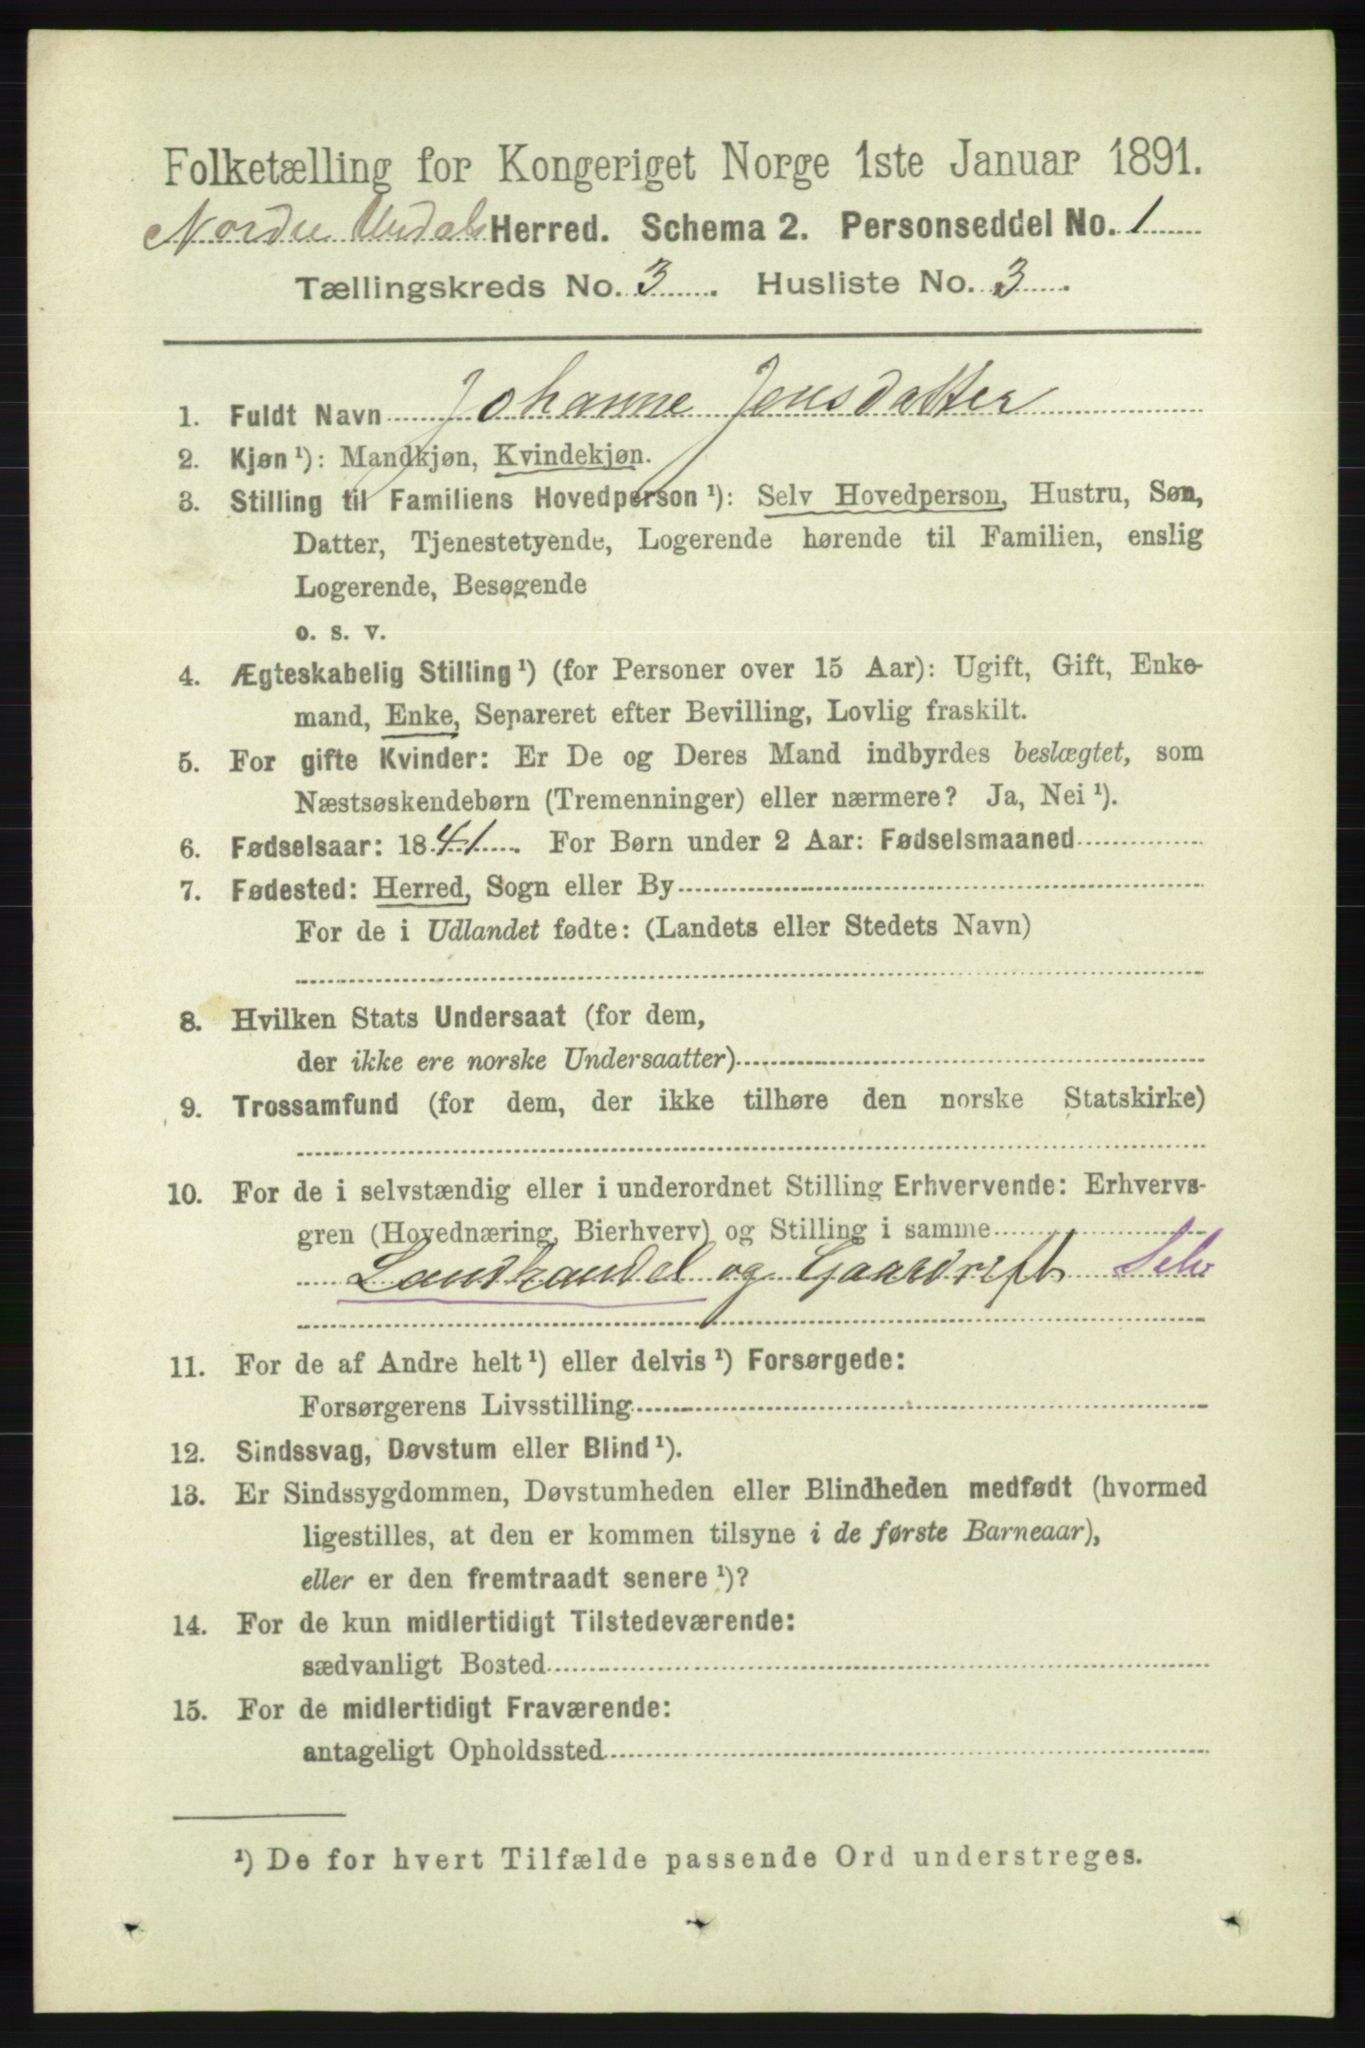 Folketælling for Kongeriget Norge 1ste Januar 1891.
Nordre Undals Herred. Schema 2. Personseddel No. 1
Tællingskreds No. 3. Husliste No. 3.
1. Fuldt Navn Johanne Jensdatter
2. Kjøn ¹): Mandkjøn, Kvindekjøn.
3. Stilling til Familiens Hovedperson ¹): Selv Hovedperson, Hustru, Søn,
Datter, Tjenestetyende, Logerende hørende til Familien, enslig
Logerende, Besøgende
o. s. v.
4. Ægteskabelig Stilling ¹) (for Personer over 15 Aar): Ugift, Gift, Enke-
mand, Enke, Separeret efter Bevilling, Lovlig fraskilt.
5. For gifte Kvinder: Er De og Deres Mand indbyrdes beslægtet, som
Næstsøskendebørn (Tremenninger) eller nærmere? Ja, Nei ¹).
6. Fødselsaar: 1841. For Børn under 2 Aar: Fødselsmaaned
7. Fødested: Herred, Sogn eller By
For de i Udlandet fødte: (Landets eller Stedets Navn)
8. Hvilken Stats Undersaat (for dem,
der ikke ere norske Undersaatter)
9. Trossamfund (for dem, der ikke tilhøre den norske Statskirke)
10. For de i selvstændig eller i underordnet Stilling Erhvervende: Erhvervs-
gren (Hovednæring, Bierhverv) og Stilling i samme
Landhandel og Gaardrift Selv
11. For de af Andre helt ¹) eller delvis ¹) Forsørgede:
Forsørgerens Livsstilling
12. Sindssvag, Døvstum eller Blind ¹).
13. Er Sindssygdommen, Døvstumheden eller Blindheden medfødt (hvormed
ligestilles, at den er kommen tilsyne i de første Barneaar),
eller er den fremtraadt senere ¹)?
14. For de kun midlertidigt Tilstedeværende:
sædvanligt Bosted
15. For de midlertidigt Fraværende:
antageligt Opholdssted
¹) De for hvert Tilfælde passende Ord understreges.